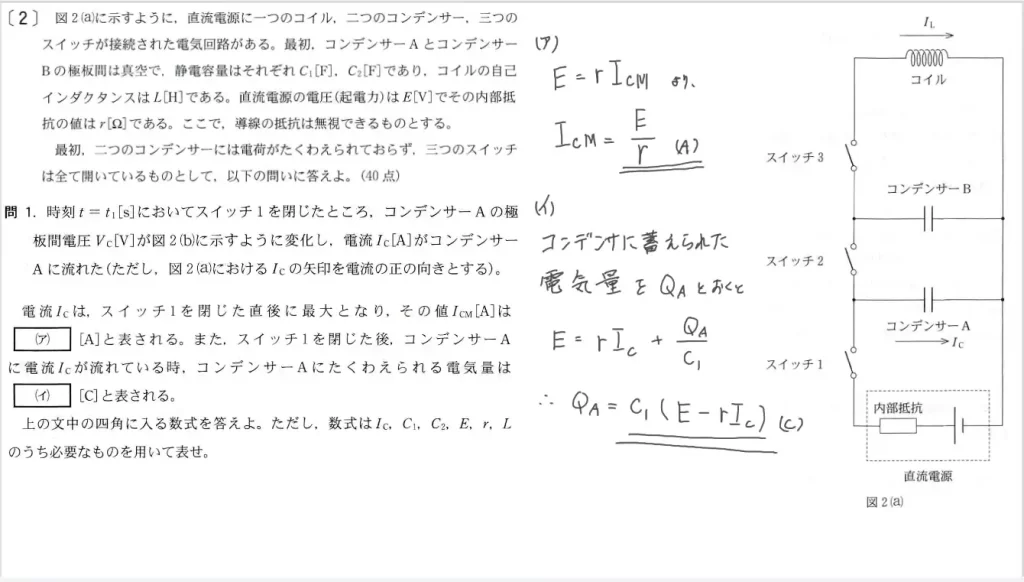 〔2〕 図2(a)に示すように，直流電源に一つのコイル，二つのコンデンサー，三つの
スイッチが接続された電気回路がある。最初，コンデンサーAとコンデンサー
Bの極板間は真空で，静電容量はそれぞれC₁[F]，C₂[F]であり，コイルの自己
インダクタンスはL[H]である。直流電源の電圧(起電力)はE[V]でその内部抵
抗の値はr[Ω]である。ここで，導線の抵抗は無視できるものとする。
最初，二つのコンデンサーには電荷がたくわえられておらず，三つのスイッチ
は全て開いているものとして，以下の問いに答えよ。(40点)
問1．時刻t＝t₁[s]においてスイッチ1を閉じたところ，コンデンサーAの極
板間電圧V_C[V]が図2(b)に示すように変化し，電流I_C[A]がコンデンサー
Aに流れた(ただし，図2(a)におけるI_Cの矢印を電流の正の向きとする)。
電流I_Cは，スイッチ1を閉じた直後に最大となり，その値I_CM[A]は
(ア) [A]と表される。また，スイッチ1を閉じた後，コンデンサーA
に電流I_Cが流れている時，コンデンサーAにたくわえられる電気量は
(イ) [C]と表される。
上の文中の四角に入る数式を答えよ。ただし，数式はI_C，C₁，C₂，E，r，L
のうち必要なものを用いて表せ。
(ア)
E = r I_CM より、
I_CM = E/r (A)
(イ)
コンデンサに蓄えられた
電気量を Q_A とおくと
E = r I_C + Q_A/C₁
∴ Q_A = C₁ (E − r I_C) (C)
I_L
コイル
スイッチ3
コンデンサーB
スイッチ2
コンデンサーA
I_C
スイッチ1
内部抵抗
直流電源
図2(a)